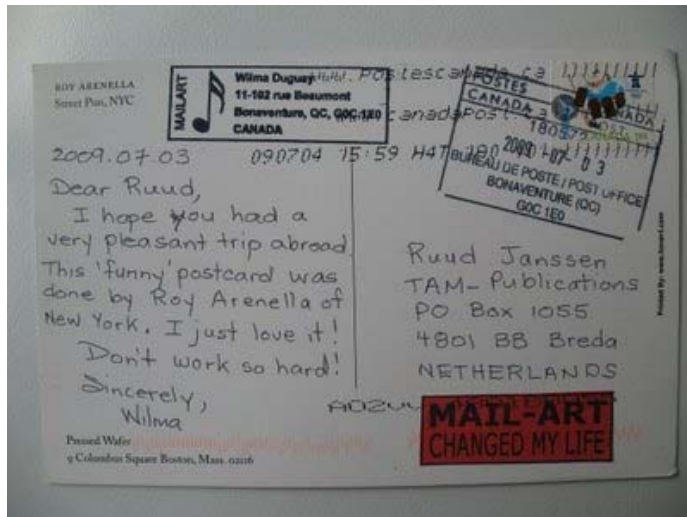 ROY ARENELLA
Street Pun, NYC
MAILART
Wilma Duguay
11-102 rue Beaumont
Bonaventure, QC, G0C 1E0
CANADA
postescanada.ca
canadapost.ca
POSTES
CANADA
CANADA
2009-07-03
BUREAU DE POSTE / POST OFFICE
BONAVENTURE (QC)
G0C 1E0
2009.07.03
090704 15:59 H4T
Dear Ruud,
I hope you had a
very pleasant trip abroad.
This 'funny' postcard was
done by Roy Arenella of
New York. I just love it!
Don't work so hard!
Sincerely,
Wilma
Ruud Janssen
TAM-Publications
PO Box 1055
4801 BB Breda
NETHERLANDS
MAIL-ART
CHANGED MY LIFE
Pressed Wafer
9 Columbus Square Boston, Mass. 02116